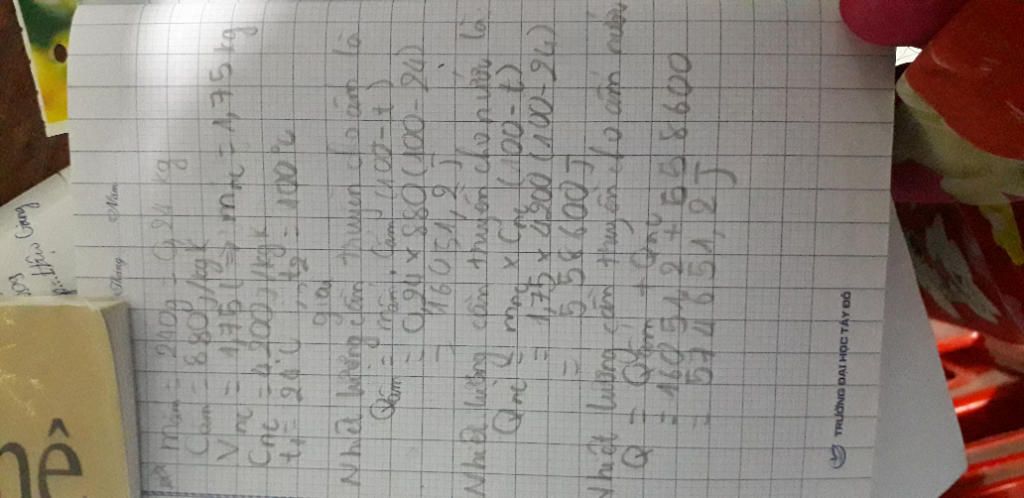 Tháng Năm
mấm = 240g = 0,24 kg
Cấm = 880J/kgK
Vnc = 1,75l => mnc = 1,75 kg
Cnc = 4200J/kgK
t1 = 24°C ; t2 = 100°C
giải
Nhiệt lượng cần truyền cho ấm là
Qấm = mấm . Cấm (100-t)
= 0,24 x 880 (100-24)
= 16051,2 J
Nhiệt lượng cần truyền cho nước là
Qnc = mnc x Cnc (100-t)
= 1,75 x 4200 (100-24)
= 558600J
Nhiệt lượng cần truyền cho ấm nước
Q = Qấm + Qnc
= 16051,2 + 558600
= 574651,2J
TRƯỜNG ĐẠI HỌC TÂY ĐÔ
ê